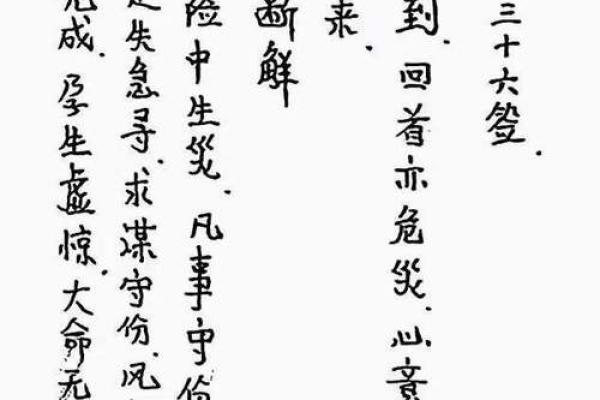 三十六签.
到.回首亦危災.心意
来.
断鲜
险中生災.凡事守份
失急寻.求谋守份.风
成.孕生虚惊.大命无